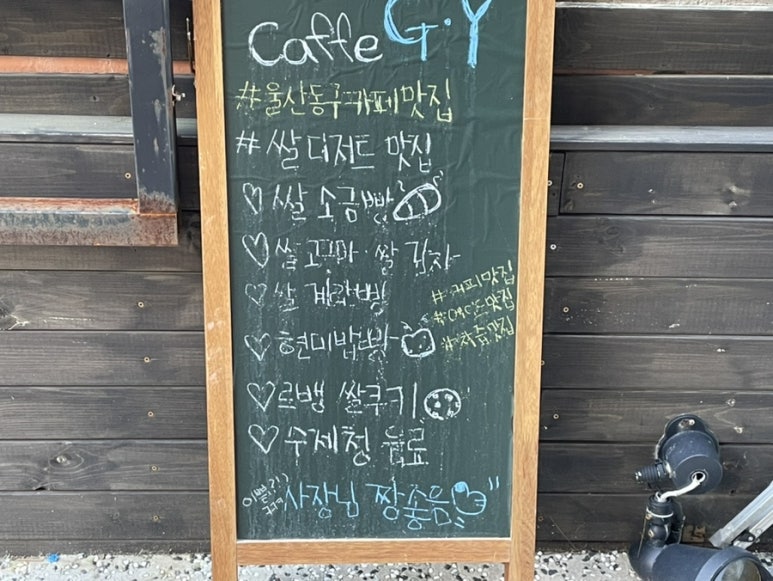 Caffe G.Y
#울산동구카페맛집
#쌀디저트 맛집
♡쌀 소금빵
♡쌀 꼬마·쌀 감자
♡쌀 계란빵
♡현미밥빵
♡르뱅 쌀쿠키
♡수제청 음료
#커피맛집
#에이드맛집
#차숲맛집
사장님 짱좋음